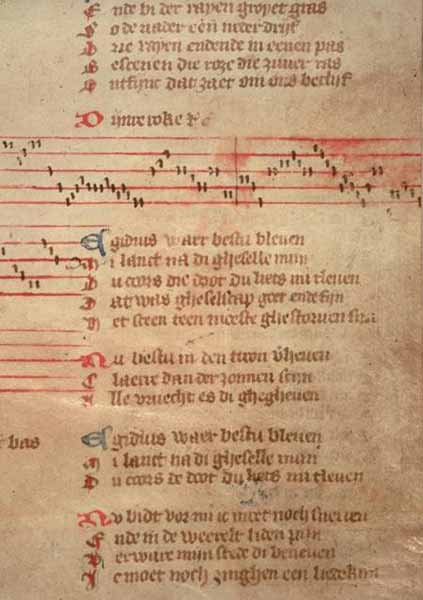 E nde bi der rayen groyet gras
rie rayen endende in eenen pas
B escenen die roze die zuuer was
dat zaet om ons bedijf
E gidius waer bestu bleuen
M i lanct na di gheselle mijn
D u coors die doot du liets mi tleuen
D at was gheselscap goet ende fijn
H et sceen teen moeste ghestoruen sijn
N u bestu in den troon vheuen
C laerre dan der zonnen scijn
A lle vruecht es di ghegheuen
bas
E gidius waer bestu bleuen
M i lanct na di gheselle mijn
D u coors de doot du liets mi tleuen
N v bidt vor mi ic moet noch sneuen
E nde in de weerelt liden pijn
V erware mijn stede di beneuen
I c moet noch zinghen een liedekijn